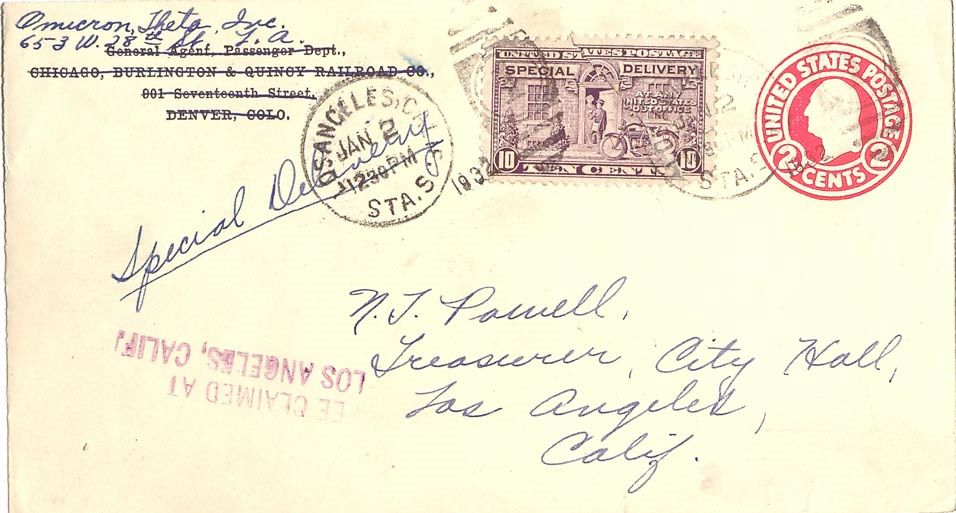 Omicron Theta, Inc.
653 W. 28th St. L. A.
General Agent, Passenger Dept.,
CHICAGO, BURLINGTON & QUINCY RAILROAD CO.,
901 Seventeenth Street,
DENVER, COLO.
Special Delivery
LOS ANGELES, CA
JAN 2
1230PM
STA. S
1932
UNITED STATES POSTAGE
SPECIAL DELIVERY
AT ANY
UNITED STATES
POST OFFICE
10 TEN CENTS 10
STA. S
UNITED STATES POSTAGE
2 CENTS 2
N. T. Powell,
Treasurer, City Hall,
Los Angeles,
Calif.
FEE CLAIMED AT
LOS ANGELES, CALIF.